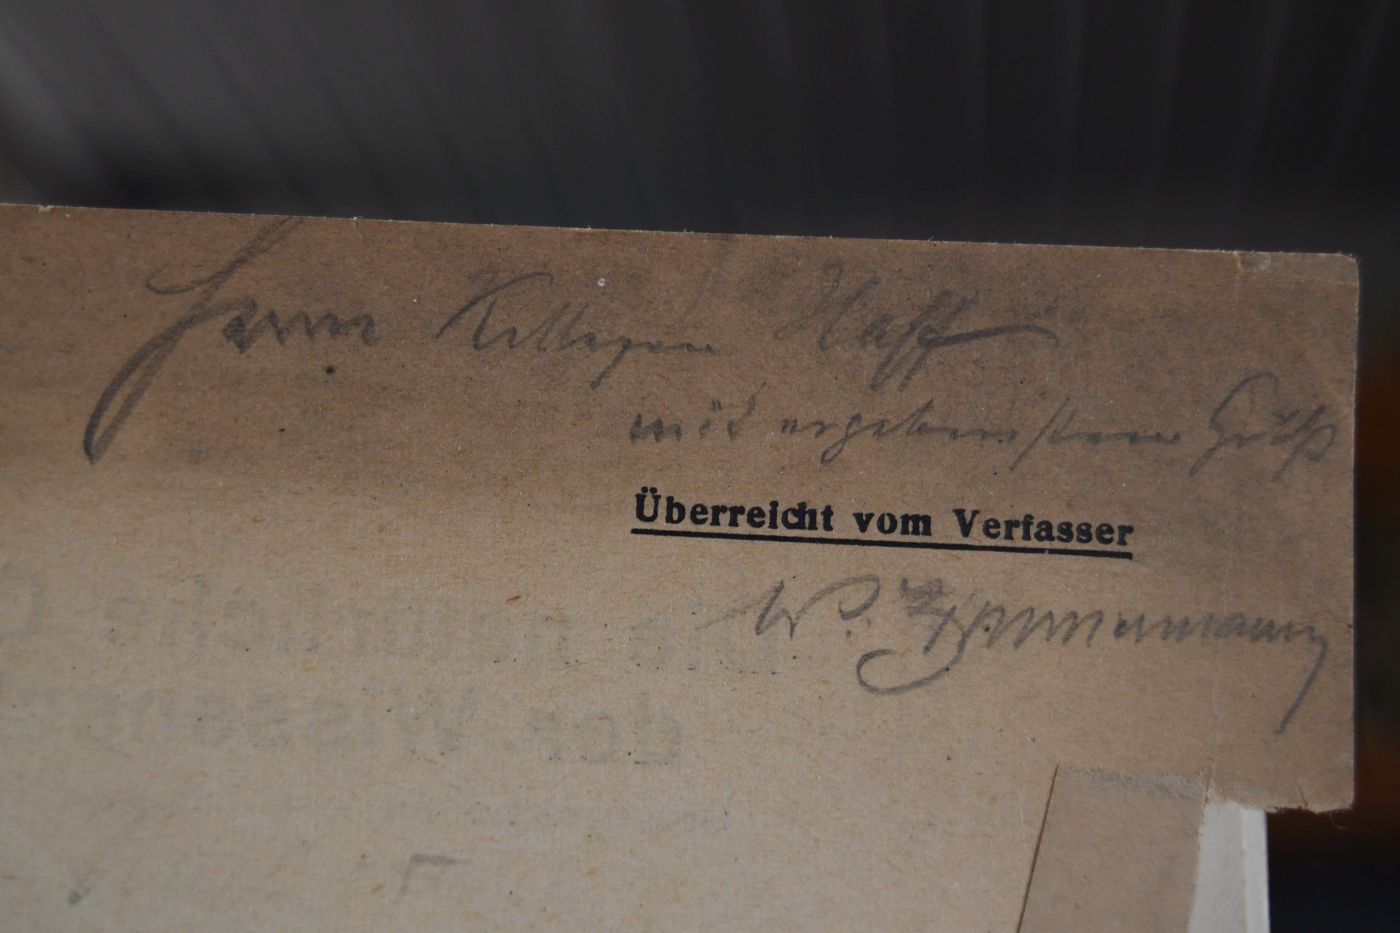 Herrn Kollegen Haff
mit ergebenstem Gruß
Überreicht vom Verfasser
W.
Die natürliche
der Wissens